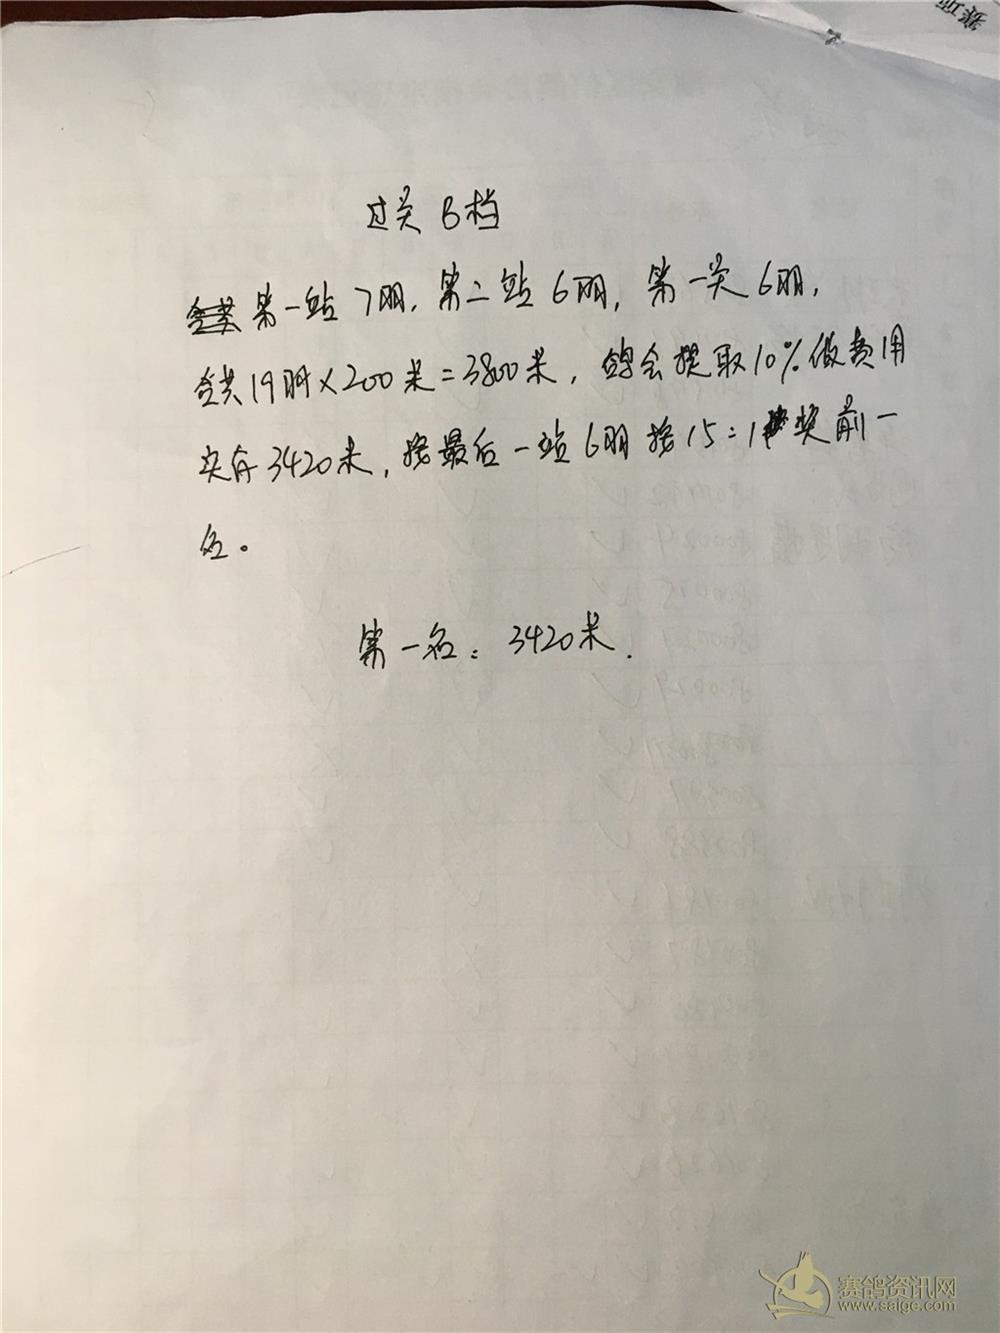 赛项
过关B档
第一站7羽,第二站6羽,第一关6羽,
合共19羽×200米=3800米,鸽会提取10%做费用
实有3420米,按最后一站6羽按15:1奖前一
名。
第一名:3420米.
赛鸽资讯网
www.saige.com